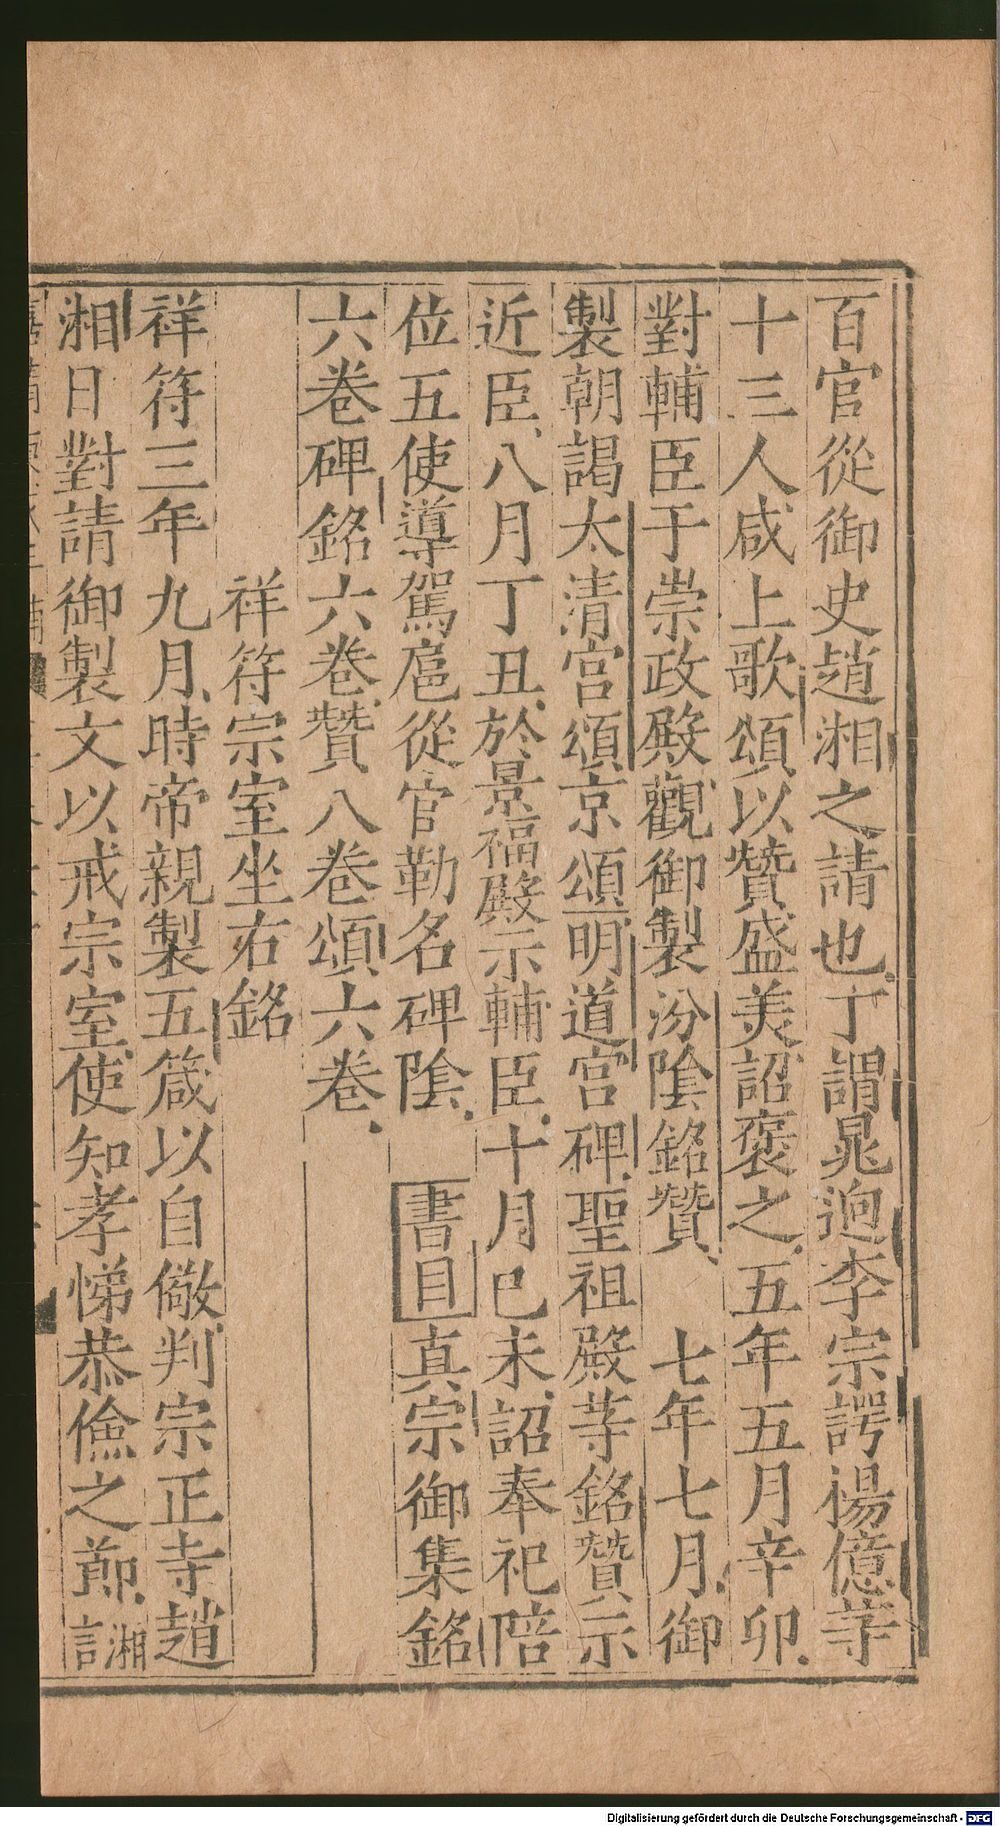 百官從御史趙湘之請也丁謂晁逈李宗諤楊億等
十三人咸上歌頌以贊盛美詔褒之五年五月辛卯
對輔臣于崇政殿觀御製汾陰銘贊　七年七月御
製朝謁太清宮頌京頌明道宮碑聖祖殿等銘贊示
近臣八月丁丑於景福殿示輔臣十月巳未詔奉祀陪
位五使導駕扈從官勒名碑陰　書目真宗御集銘
六卷碑銘六卷贊八卷頌六卷
祥符宗室坐右銘
祥符三年九月時帝親製五箴以自儆判宗正寺趙
湘日對請御製文以戒宗室使知孝悌恭儉之節湘言
Digitalisierung gefördert durch die Deutsche Forschungsgemeinschaft - DFG